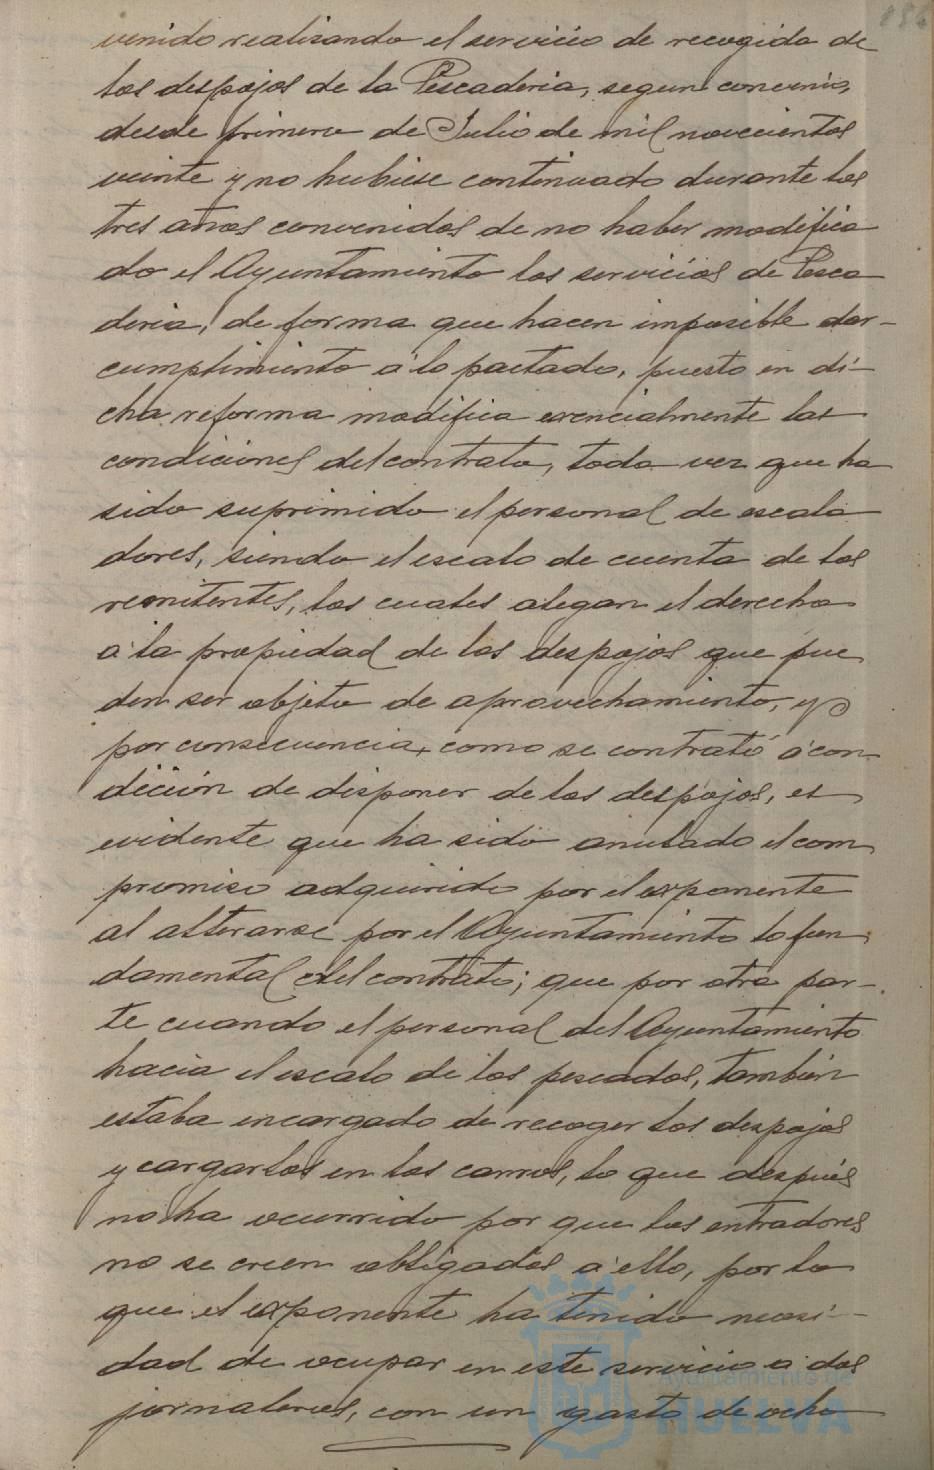 venido realizando el servicio de recogida de
los despojos de la Pescaderia, segun convenio,
desde primero de Julio de mil novecientos
veinte y no hubiese continuado durante los
tres años convenidos de no haber modifica
do el Ayuntamiento los servicios de Pesca
deria, de forma que hacen imposible dar-
cumplimiento á lo pactado, puesto en di-
cha reforma modifica esencialmente las
condiciones del contrato, toda vez que ha
sido suprimido el personal de escala
dores, siendo el escalo de cuenta de los
remitentes, los cuales alegan el derecho
á la propiedad de los despojos que pue
den ser objeto de aprovechamiento, y
por consecuencia, como se contrató á con
dición de disponer de los despojos, es
evidente que ha sido anulado el com
promiso adquirido por el exponente
al alterarse por el Ayuntamiento lo fun
damental del contrato; que por otra par-
te cuando el personal del Ayuntamiento
hacia el escalo de los pescados, tambien
estaba encargado de recoger los despojos
y cargarlos en los carros, lo que después
no ha ocurrido por que los entradores
no se creen obligados á ello, por lo
que el exponente ha tenido necesi-
dad de ocupar en este servicio a dos
jornaleros, con un gasto de ocho
Ayuntamiento de
HUELVA